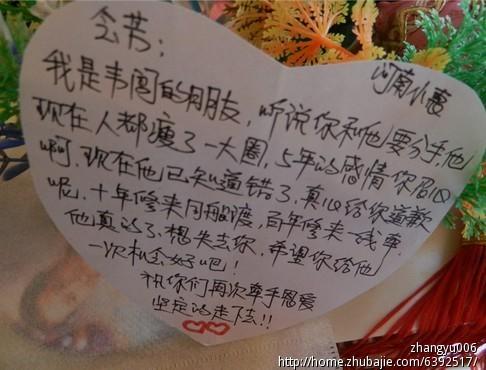 会芳：
河南小惠
我是韦阁的网朋友，听说你和他要分手他
现在人都瘦了一大圈，5年的感情你忍心
啊，现在他已知道错了，真心给你道歉
呢，十年修来同船渡，百年修来一线牵
他真的了想失去你，希望你给他
一次机会好吧！
祝你们再次牵手恩爱
坚定的走下去!!
zhangyu006
http://home.zhubajie.com/6392517/